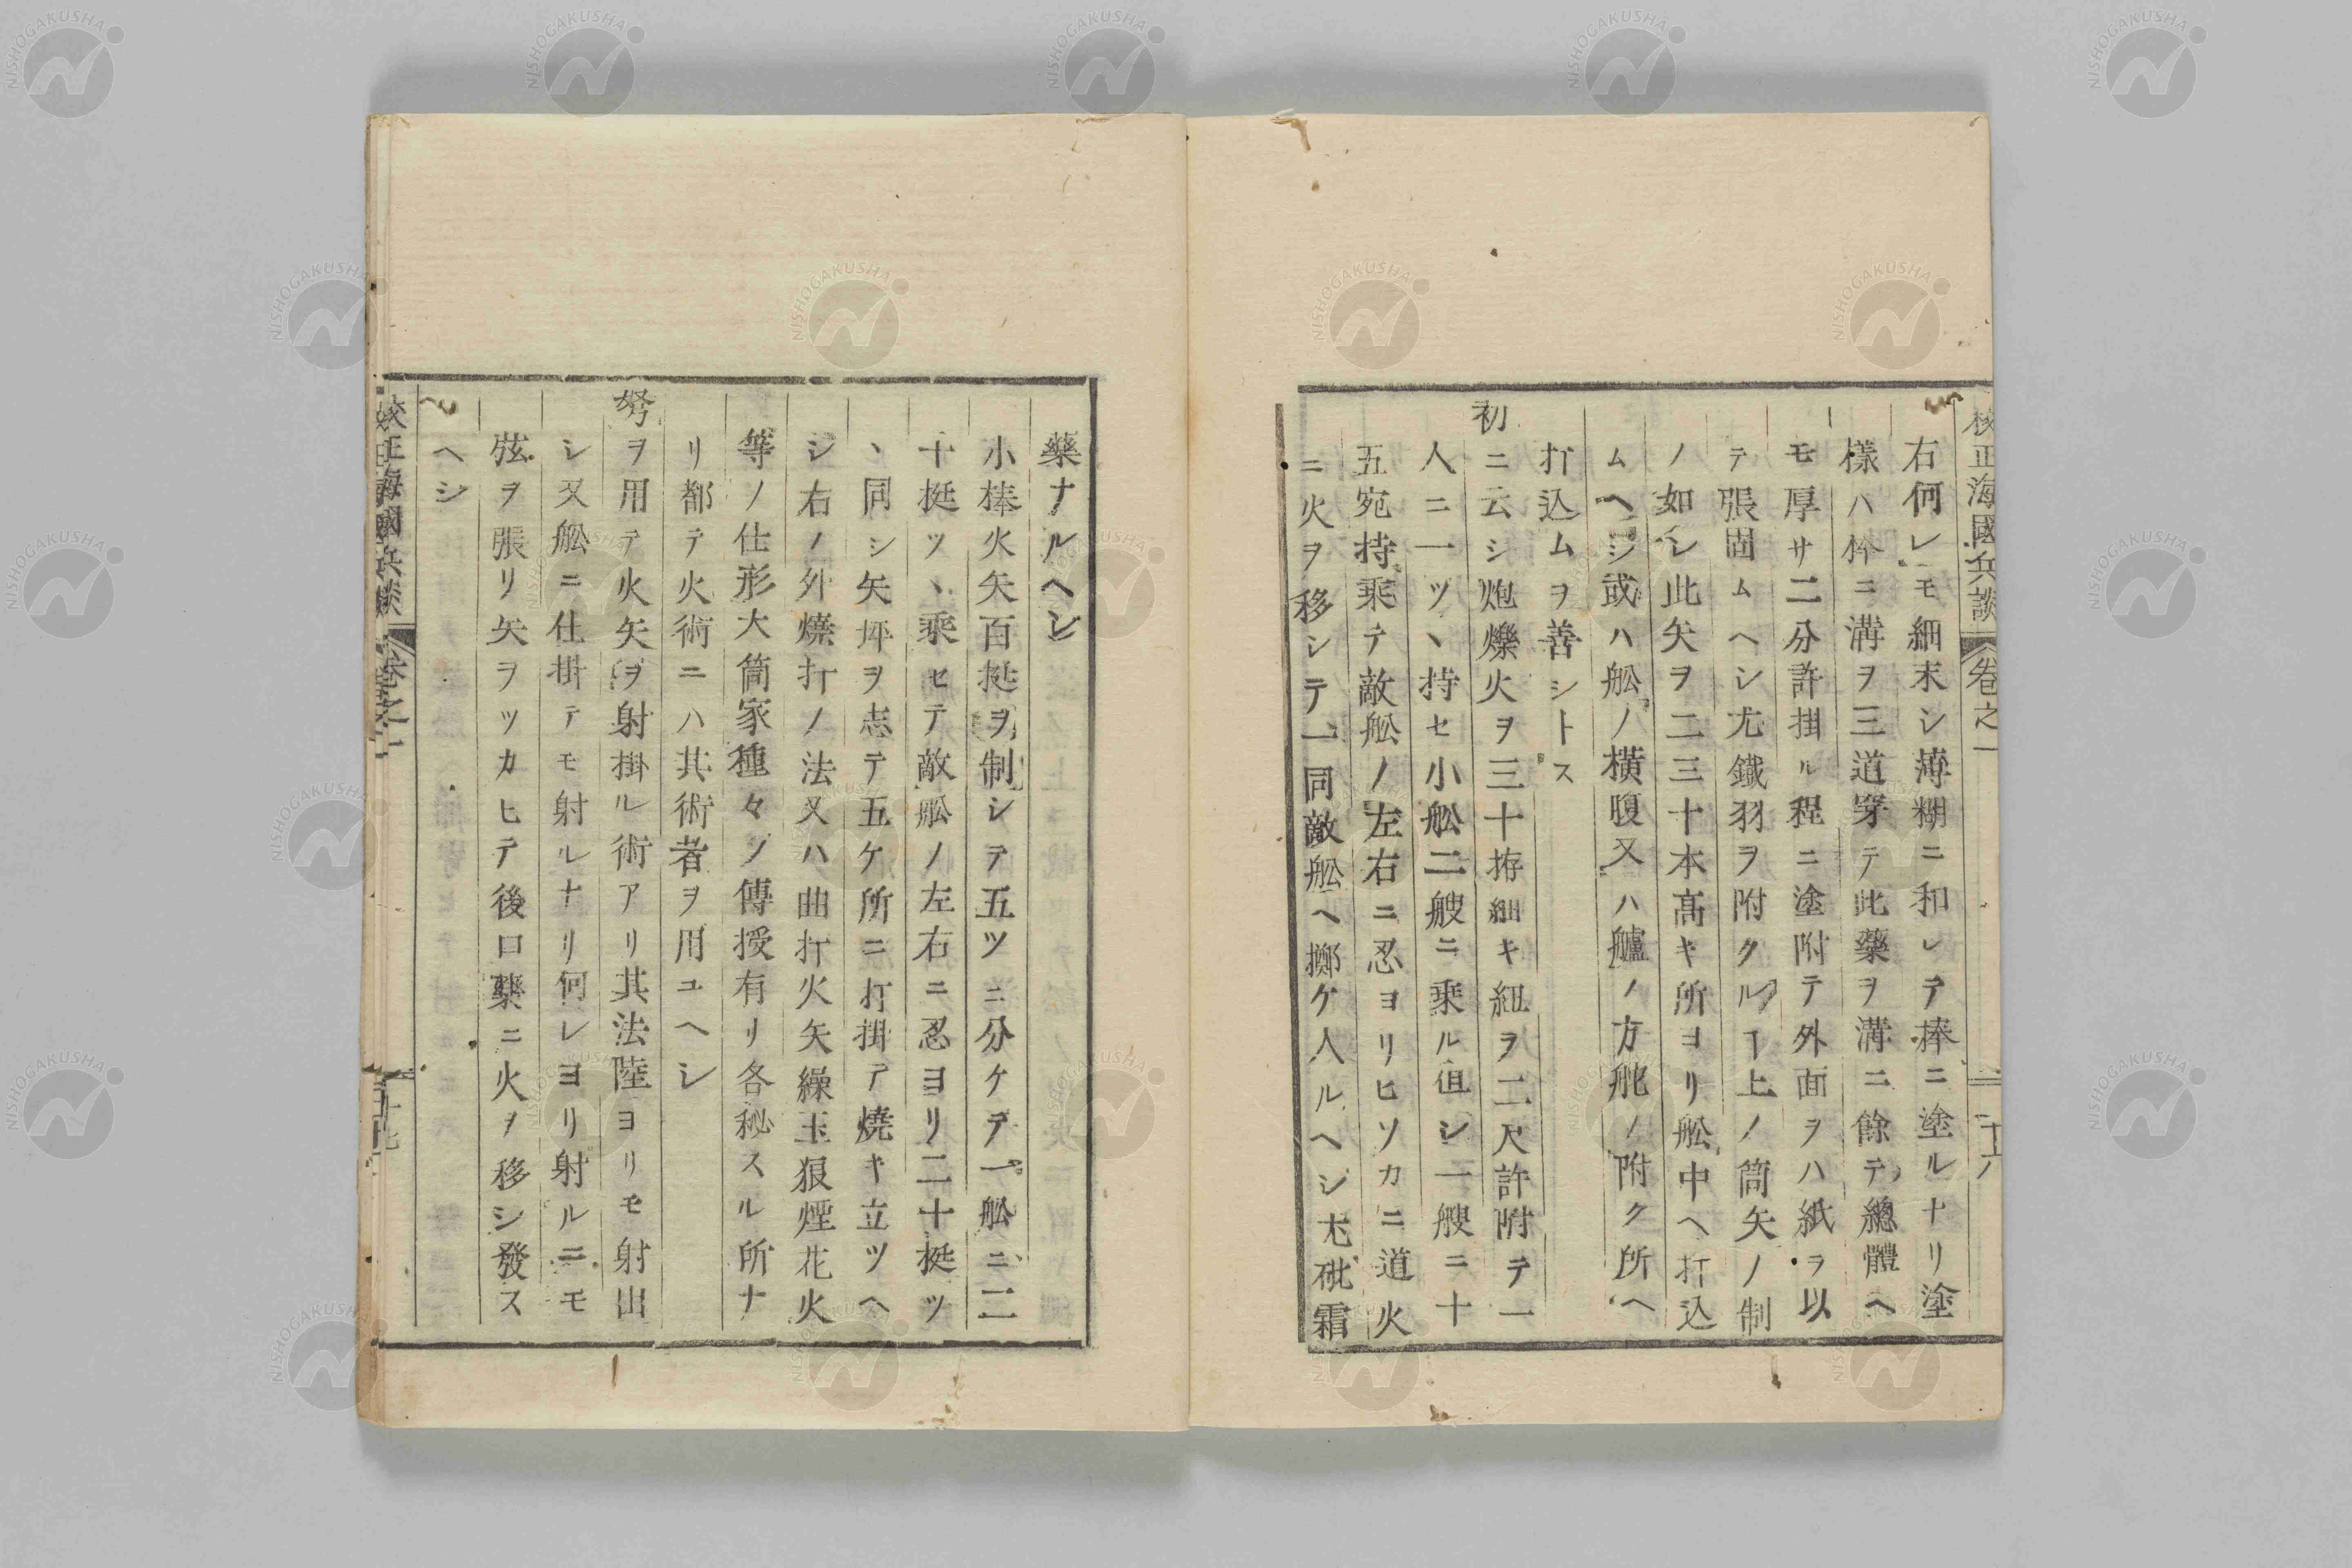 校正海國兵談 卷之一 二十六
右何レモ細末シ薄糊ニ和レテ捧ニ塗ルナリ塗
樣ハ幹ニ溝ヲ三道穿テ此藥ヲ溝ニ餘テ總體ヘ
モ厚サ二分許掛ル程ニ塗附テ外面ヲハ紙ヲ以
テ張固ムヘシ尤鐵羽ヲ附クルヿ上ノ筒矢ノ制
ノ如シ此矢ヲ二三十本髙キ所ヨリ舩中ヘ打込
ムヘシ或ハ舩ノ横腹又ハ艫ノ方舵ノ附ク所ヘ
打込ムヲ善シトス
初ニ云シ炮爍火ヲ三十拵細キ紐ヲ二尺許附テ一
人ニ一ツヽ持セ小舩二艘ニ乗ル徂シ一艘ニ十
五宛持乗テ敵舩ノ左右ニ忍ヨリヒソカニ道火
ニ火ヲ移シテ一同敵舩ヘ擲ケ入ルヘシ尤砒霜
藥ナルヘシ
小棒火矢百挺ヲ制レテ五ツニ分ケテ一舩ニ二
十挺ツヽ乘セテ敵舩ノ左右ニ忍ヨリ二十挺ツ
ヽ同シ矢坪ヲ志テ五ケ所ニ打掛テ燒キ立ツヘ
シ右ノ外燒打ノ法又ハ曲打火矢繰玉狼煙花火
等ノ仕形大筒家種々ノ傳授有リ各秘スル所ナ
リ都テ火術ニハ其術者ヲ用ユヘシ
弩ヲ用テ火矢ヲ射掛ル術アリ其法陸ヨリモ射出
シ又舩ニ仕掛テモ射ルナリ何レヨリ射ルニモ
弦ヲ張リ矢ヲツカヒテ後口藥ニ火ヲ移シ發ス
ヘシ
校正海國兵談 卷之一 二十七